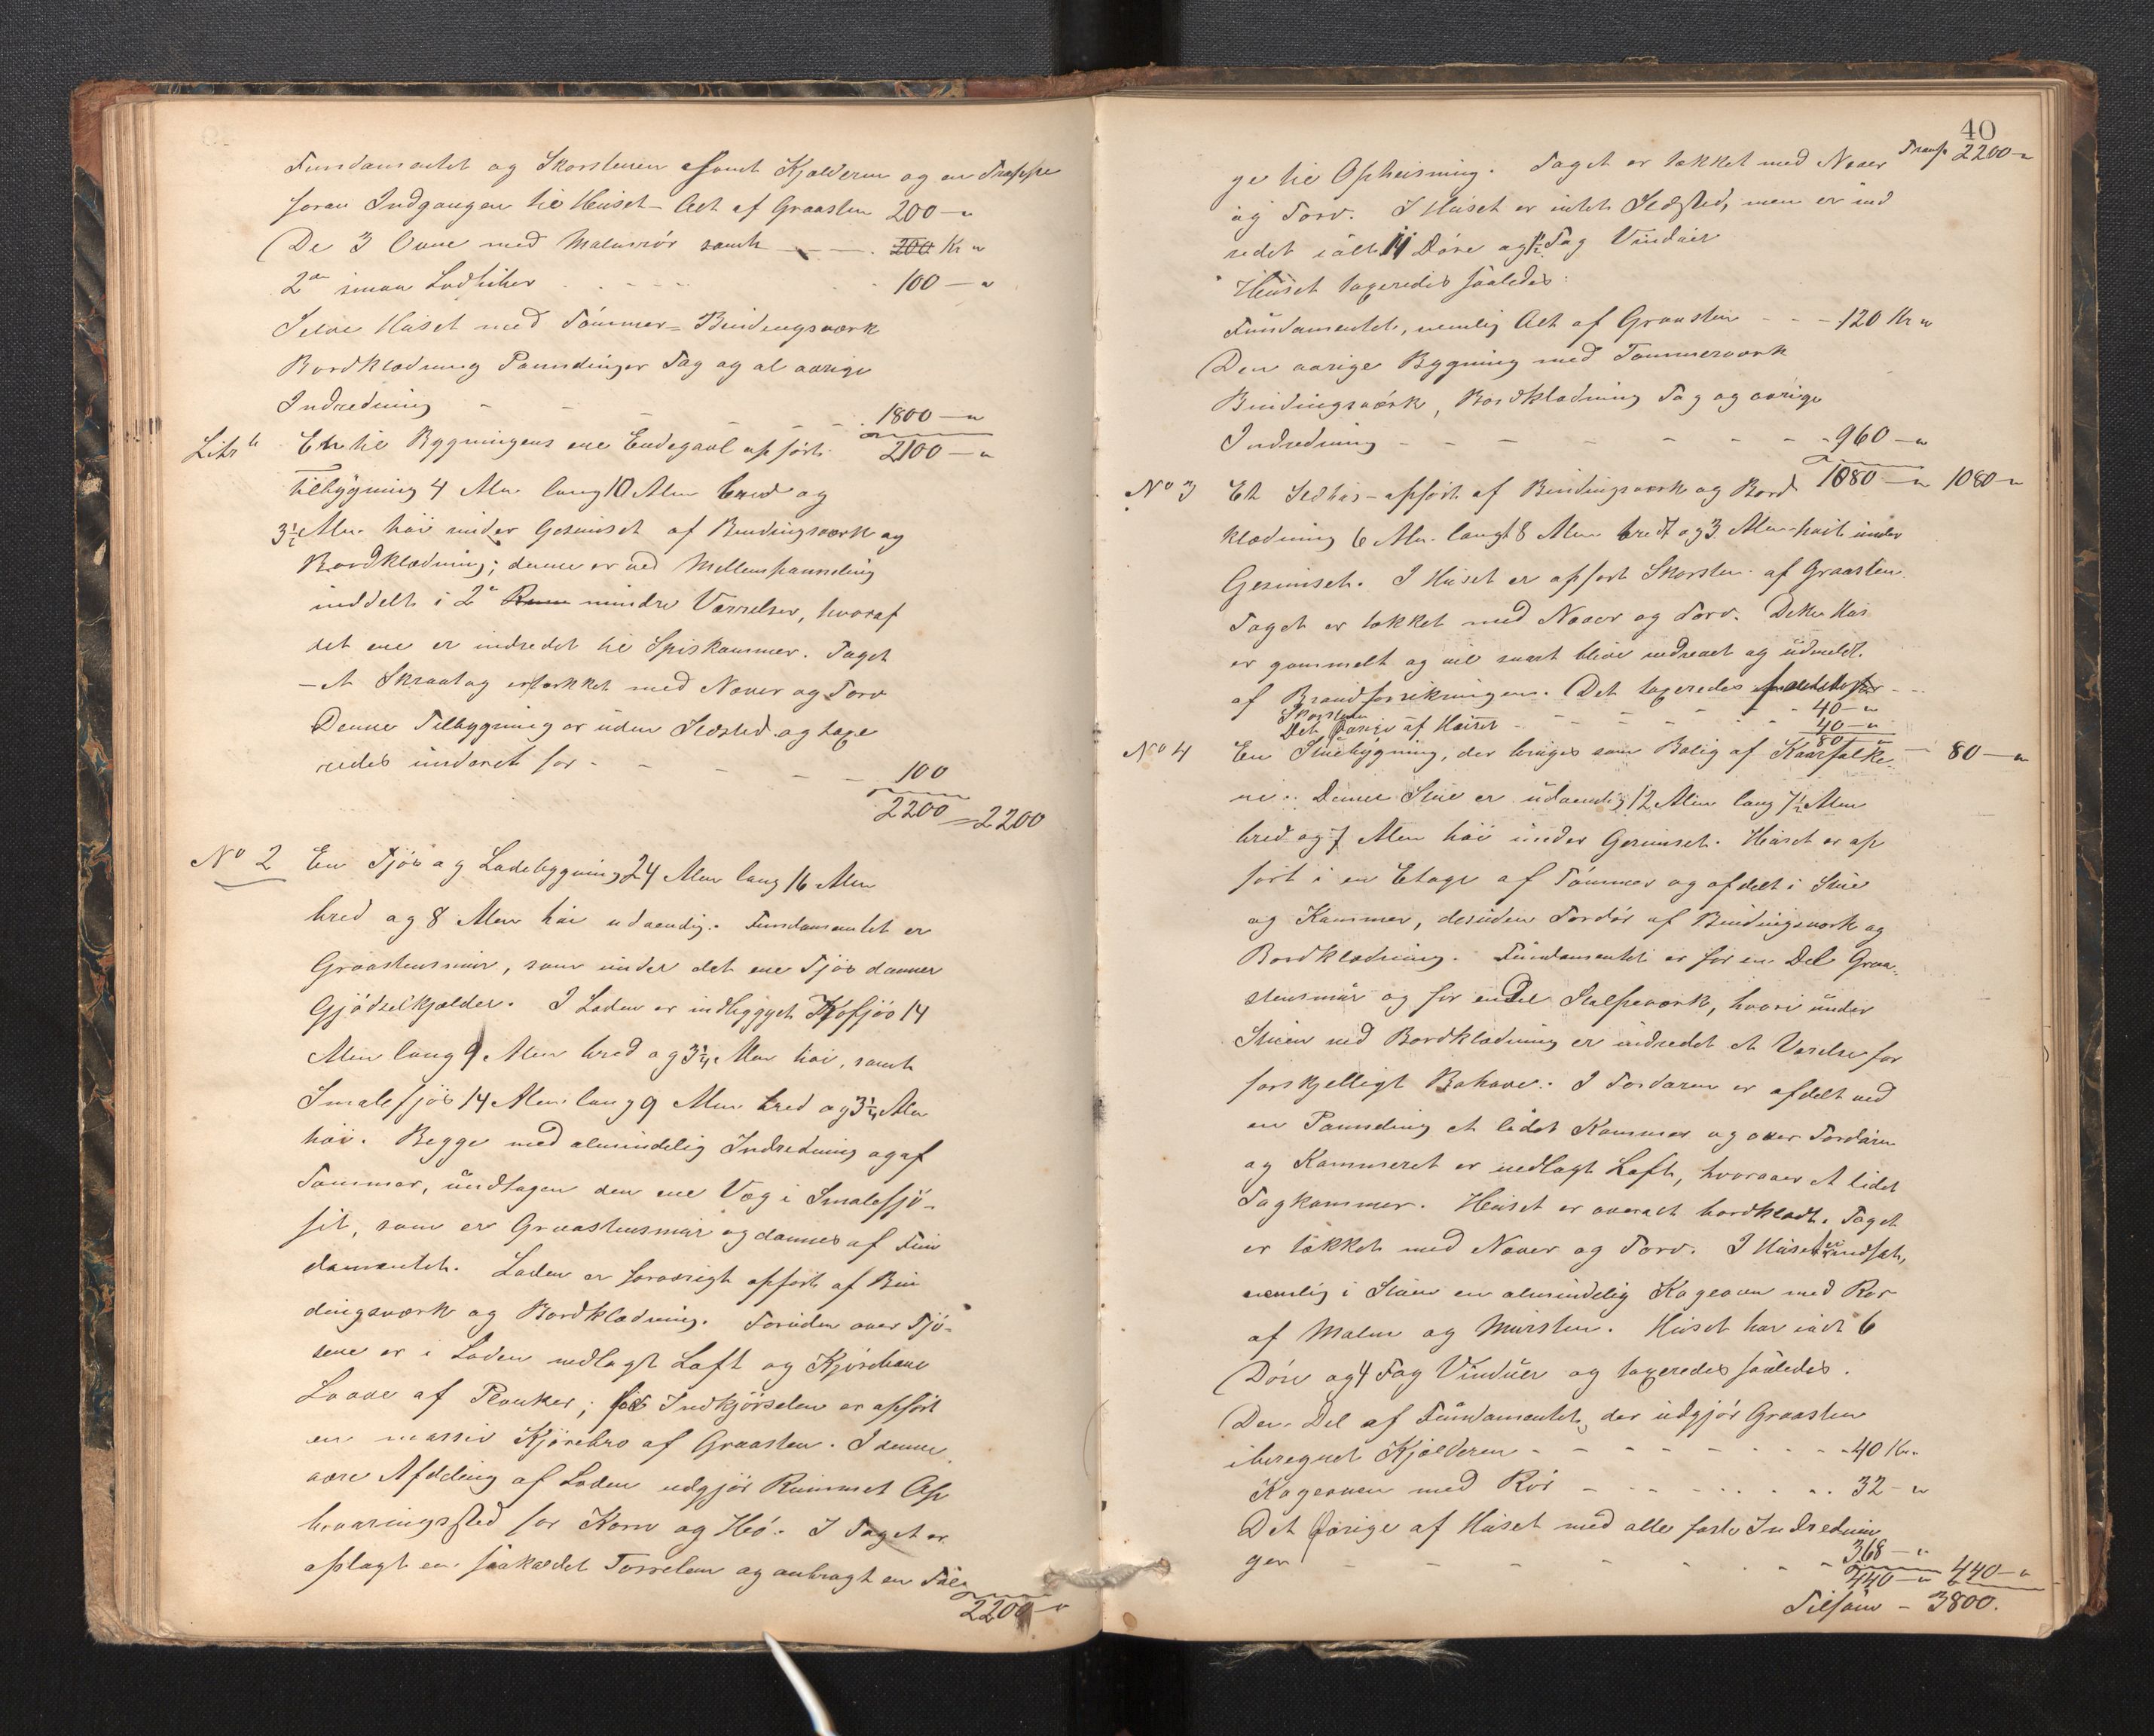 Fundamentet og Skorstenen samt Kjælderen og en Trappe
foran Indgangen til Huset – Alt af Graasten 200 – "
De 3 Ovne med Malmrör samt – – . 200 Kr "
2de smaa Ladtiker . – – – – . 100 – "
Selve Huset med Tömmer- Bindingsværk
Bordklædning Panelinger Tag og al övrige
Indredning – – – – – . 1800 – "
2100 – "
Litr b Et til Bygningens ene Endegavl opfört
Tilbygning 4 Alen lang 10 Alen bred og
3½ Alen höi under Gesimset af Bindingsværk og
Bordklædning; denne er ved Mellempanneling
inddelt i 2de Rum mindre Værelser, hvoraf
det ene er indredet til Spiskammer. Taget
– et Skraatag er tækket med Næver og Torv
Denne Tilbygning er uden Ildsted og taxe
redes underet for – – – – – 100
2200 = 2200
No 2 En Fjös og Ladebygning 24 Alen lang 16 Alen
bred og 8 Alen höi udvendig. Fundamentet er
Graastensmur, som under det ene Fjös danner
Gjödselkjælder. I Laden er indbygget Kofjös 14
Alen lang 9 Alen bred og 3¼ Alen höi, samt
Smalefjös 14 Alen lang 9 Alen bred og 3¼ Alen
höi. Begge med almindelig Indredning og af
Tömmer, undtagen den ene Væg i Smalefjö-
set, som er Graastensmur og dannes af Fun
damentet. Laden er forövrigt opfört af Bin
dingsværk og Bordklædning. Foruden over Fjö-
sene er i Laden nedlagt Loft og Kjörebane
Laave af Planker; for Indkjörselen er opfört
en massiv Kjörebro af Graasten. I denne
övre Afdeling af Laden udgjör Rummet Op
bevaringssted for Korn og Hö. I Taget er
oplagt en saakaldet Torrelem og anbragt en Tal
2200 – "
40
Transp 2200 – "
ge til Opheisning. Taget er tækket med Næver
og Torv. I Huset er intet Ildsted, men er ind
redet ialt 11 Döre og ½ Fag Vinduer
Huset taxeredes saaledes:
Fundamentet, nemlig Alt af Graasten – – – 120 Kr "
Den övrige Bygning med Tømmerværk
Bindingsværk, Bordklædning Tag og övrige
Indredning – – – – – – – – 960 – "
1080 – " 1080 – "
No 3 Et Ildhus – opfört af Bindingsværk og Bord
klædning 6 Alen langt 8 Alen bredt og 3 Alen höit under
Gesimset. I Huset er opfört Skorsten af Graasten
Taget er tækket med Næver og Torv. Dette Hus
er gammelt og vil snart blive nedrevet og udmeldt
af Brandforsikringen. Det taxeredes saaledes
Skorstenen – – – – – – 40 – "
Det Övrige af Huset – – – – – 40 – "
80 – " 80 – "
No 4 En Stuebygning, der bruges som Bolig af Kaarfolke
ne. Denne Stue er udvendig 12 Alen lang 7½ Alen
bred og 7 Alen höi under Gesimset. Huset er op
fört i en Etage af Tömmer og afdelt i Stue
og Kammer, desuden Fordör af Bindingsværk og
Bordklædning. Fundamentet er for en Del Graa-
stensmur og for en Del Stolpeværk, hvori under
Stuen ved Bordklædning er indredet et Værelse for
forskjelligt Behov. I Fordören er afdelt ved
en Panneling et lidet Kammer og over Fordören
og Kammeret er nedlagt Loft, hvorover et lidet
Tagkammer. Huset er overalt bordklædt. Taget
er tækket med Næver og Torv. I Huset er indsat,
nemlig i Stuen en almindelig Kogeovn med Rör
af Malm og Mursten. Huset har ialt 6
Döre og 4 Fag Vinduer og taxeredes saaledes.
Den Del af Fundamentet, der udgjör Graasten
iberegnet Kjælderen – – – – – – 40 Kr "
Kogeovnen med Rör – – – – – . 32 – "
Det Övrige af Huset med alle faste Indrednin
ger – – – – – – 368 – "
440 – " 440 – "
Tilsam – 3800.